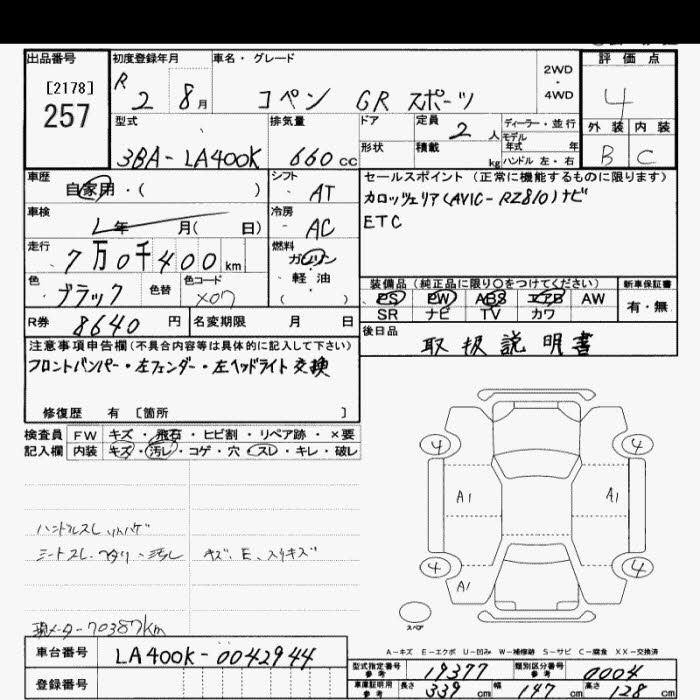 出品番号
[2178]
257
初度登録年月
R 2 8月
車名・グレード
コペン GR スポーツ
2WD
・
4WD
評価点
4
外装 内装
B C
型式
3BA-LA400K
排気量
660cc
ドア
形状
定員
2人
積載
kg
ディーラー・並行
モデル
年式 年
ハンドル 左・右
車歴
自家用・( )
シフト
・AT
冷房
・AC
車検
年 月( 日)
走行
7万0千400km
燃料
ガソリン
・軽油
・( )
色
ブラック
色替
色コード
X07
R券 8640円
名変期限 月 日
セールスポイント (正常に機能するものに限ります)
カロッツェリア(AVIC-RZ810)ナビ
ETC
装備品(純正品に限り○をつけてください)
PS PW ABS エアB AW
SR ナビ TV カワ
新車保証書
有・無
後日品
取扱説明書
注意事項申告欄(不具合内容等は具体的に記入して下さい)
フロントバンパー・左フェンダー・左ヘッドライト交換
修復歴 有 〔箇所 〕
検査員 FW キズ・飛石・ヒビ割・リペア跡・×要
記入欄 内装 キズ・汚レ・コゲ・穴・スレ・キレ・破レ
シートスレ・ヘタリ・汚レ キズ、E、スリキズ
現メーター70387km
4 4
A1 A1
4 4
A1
スペア
A-キズ E-エクボ U-凹み W-補修跡 S-サビ C-腐食 XX-交換済
車台番号 LA400K-0042944
登録番号
型式指定番号
参考
19377
類別区分番号
参考
0004
車庫証明用
参考
長さ 339cm 幅 147cm 高さ 128cm